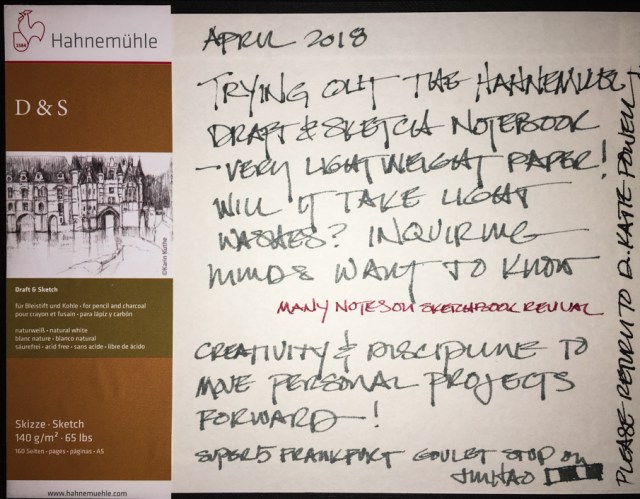 Hahnemühle
D & S
©Karin Kuthe
Draft & Sketch
für Bleistift und Kohle • for pencil and charcoal
pour crayon et fusain • para lápiz y carbón
naturweiß • natural white
blanc nature • blanco natural
säurefrei • acid free • sans acide • libre de ácido
Skizze • Sketch
140 g/m² • 65 lbs
160 Seiten • pages • páginas • A5
www.hahnemuehle.com
APRIL 2018
TRYING OUT THE HAHNEMULLE
DRAFT & SKETCH NOTEBOOK
- VERY LIGHTWEIGHT PAPER!
WILL IT TAKE LIGHT
WASHES? INQUIRING
MINDS WANT TO KNOW
MANY NOTES ON SKETCHBOOK REVIVAL
CREATIVITY & DISCIPLINE TO
MOVE PERSONAL PROJECTS
FORWARD - !
SUPER5 FRANKFURT GOULET STUB on
JINHAO
PLEASE RETURN TO D. KATIE POWELL